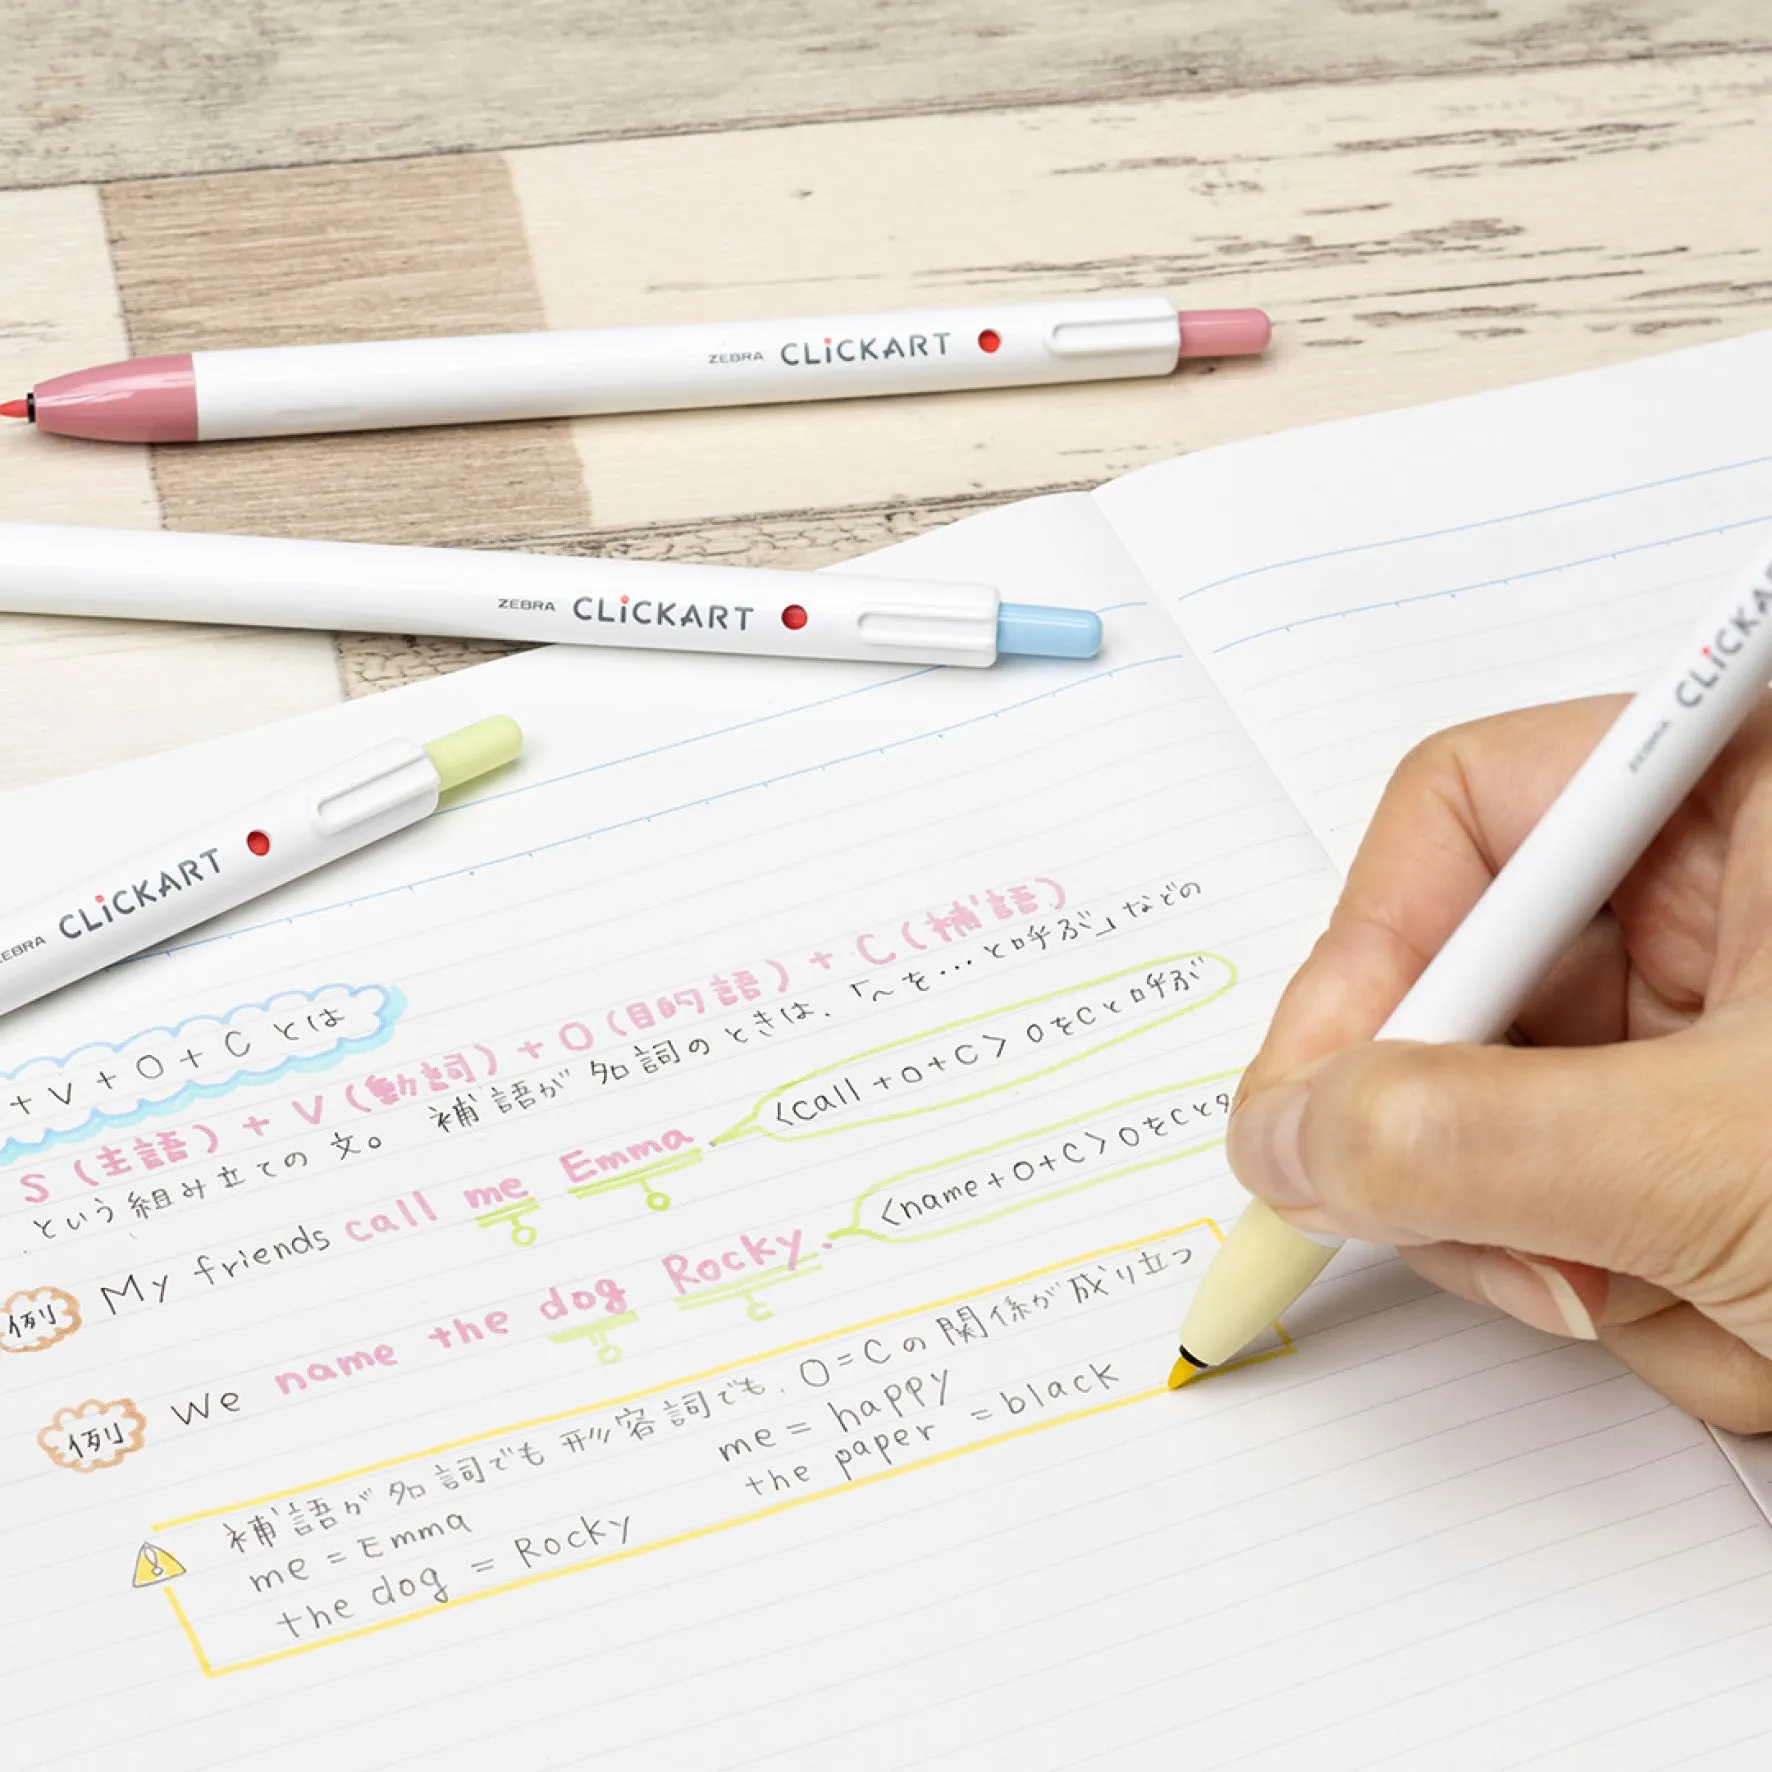 ZEBRA CLiCKART
ZEBRA CLiCKART
ZEBRA CLiCKART
ZEBRA CLiCKA
+ V + O + C とは
S (主語) + V (動詞) + O (目的語) + C (補語)
という組み立ての文。 補語が名詞のときは、「〜を…と呼ぶ」などの
例 My friends call me Emma.
O C
<call + O + C> OをCと呼ぶ
例 We name the dog Rocky.
O C
<name + O + C> OをCと
補語が名詞でも形容詞でも、O = Cの関係が成り立つ
me = Emma me = happy
the dog = Rocky the paper = black